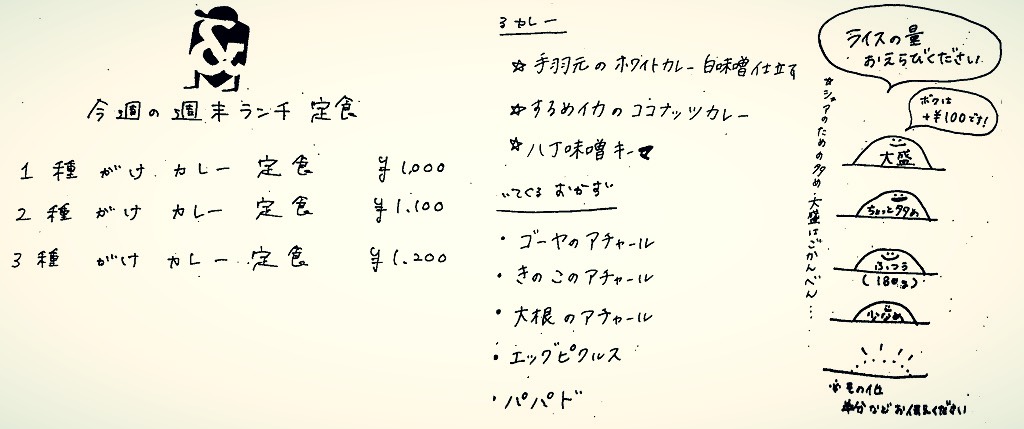 &
今週の週末ランチ定食
1種がけカレー定食 ¥1.000
2種がけカレー定食 ¥1.100
3種がけカレー定食 ¥1.200
るカレー
☆手羽元のホワイトカレー白味噌仕立て
☆するめイカのココナッツカレー
☆八丁味噌キーマ
いてくるおかず
・ゴーヤのアチャール
・きのこのアチャール
・大根のアチャール
・エッグピクルス
・パパド
☆シェアのための多め・大盛はごかんべん…
ライスの量
おえらびください
ボクは
+¥100です!
大盛
ちょっと多め
ふつう
(180g)
少なめ
※その他
半分などお伝えください